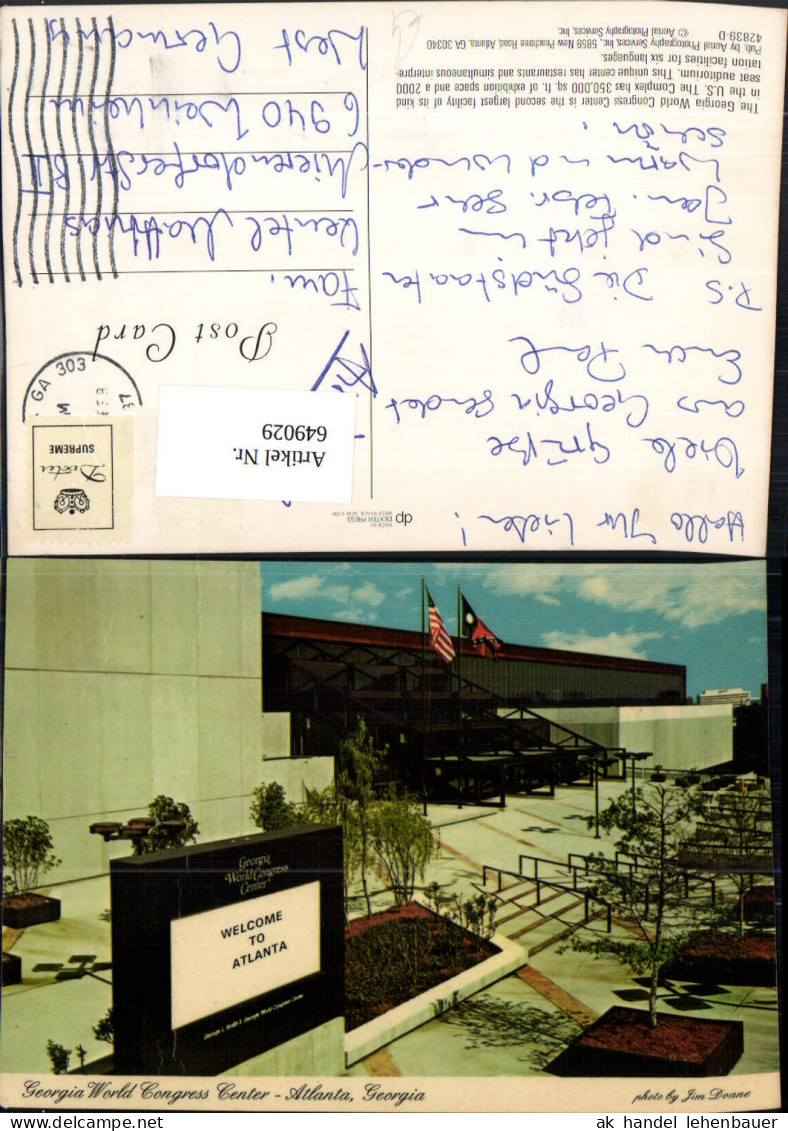 Hallo Ihr Lieben!
Viele Grüße
aus Georgia sendet
Euch Paul
P.S Die Südstaaten
Sind jetzt im
Jan. Febr. sehr
warm und wunder-
schön.
The Georgia World Congress Center is the second largest facility of its kind
in the U.S. The Complex has 350,000 sq. ft. of exhibition space and a 2000
seat auditorium. This unique center has restaurants and simultaneous interpre-
tation facilities for six languages.
Pub. by Aerial Photography Services, Inc. 5859 New Peachtree Road, Atlanta, GA 30340
42839-D © Aerial Photography Services, Inc.
MADE BY
dp DEXTER PRESS
WEST NYACK, NEW YORK
Dexter
SUPREME
GA 303
Post Card
Artikel Nr.
649029
Fam.
Mathias
6940 Weinheim
West Germany
Georgia
World Congress
Center
WELCOME
TO
ATLANTA
Georgia World Congress Center - Atlanta, Georgia
photo by Jim Doane
ak handel lehenbauer